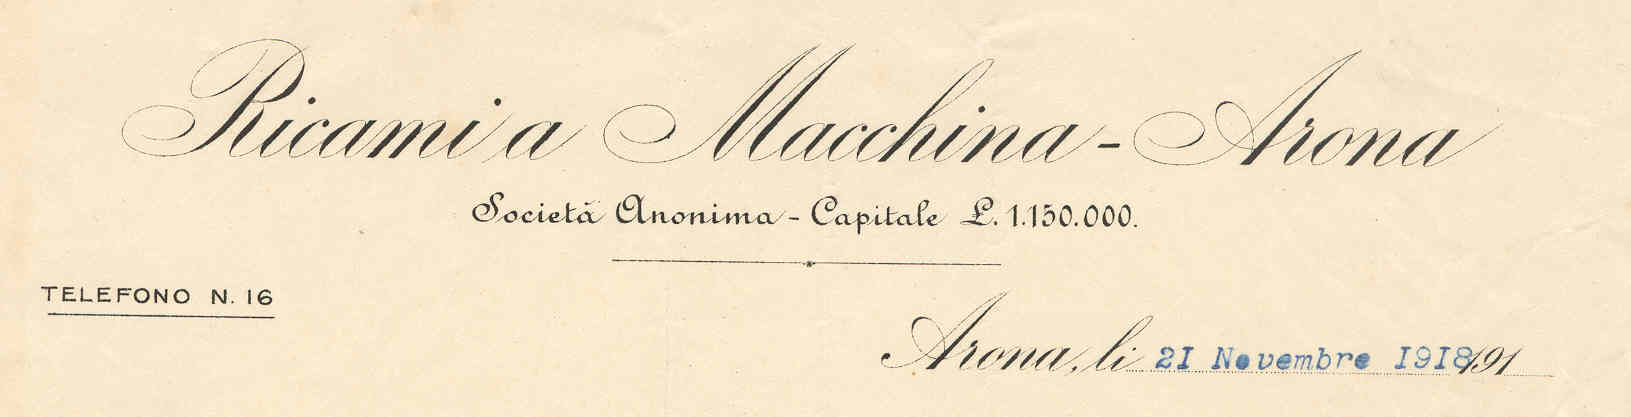 Ricami a Macchina - Arona
Società Anonima - Capitale £. 1.150.000.
TELEFONO N. 16
Arona, li 21 Novembre 1918 191